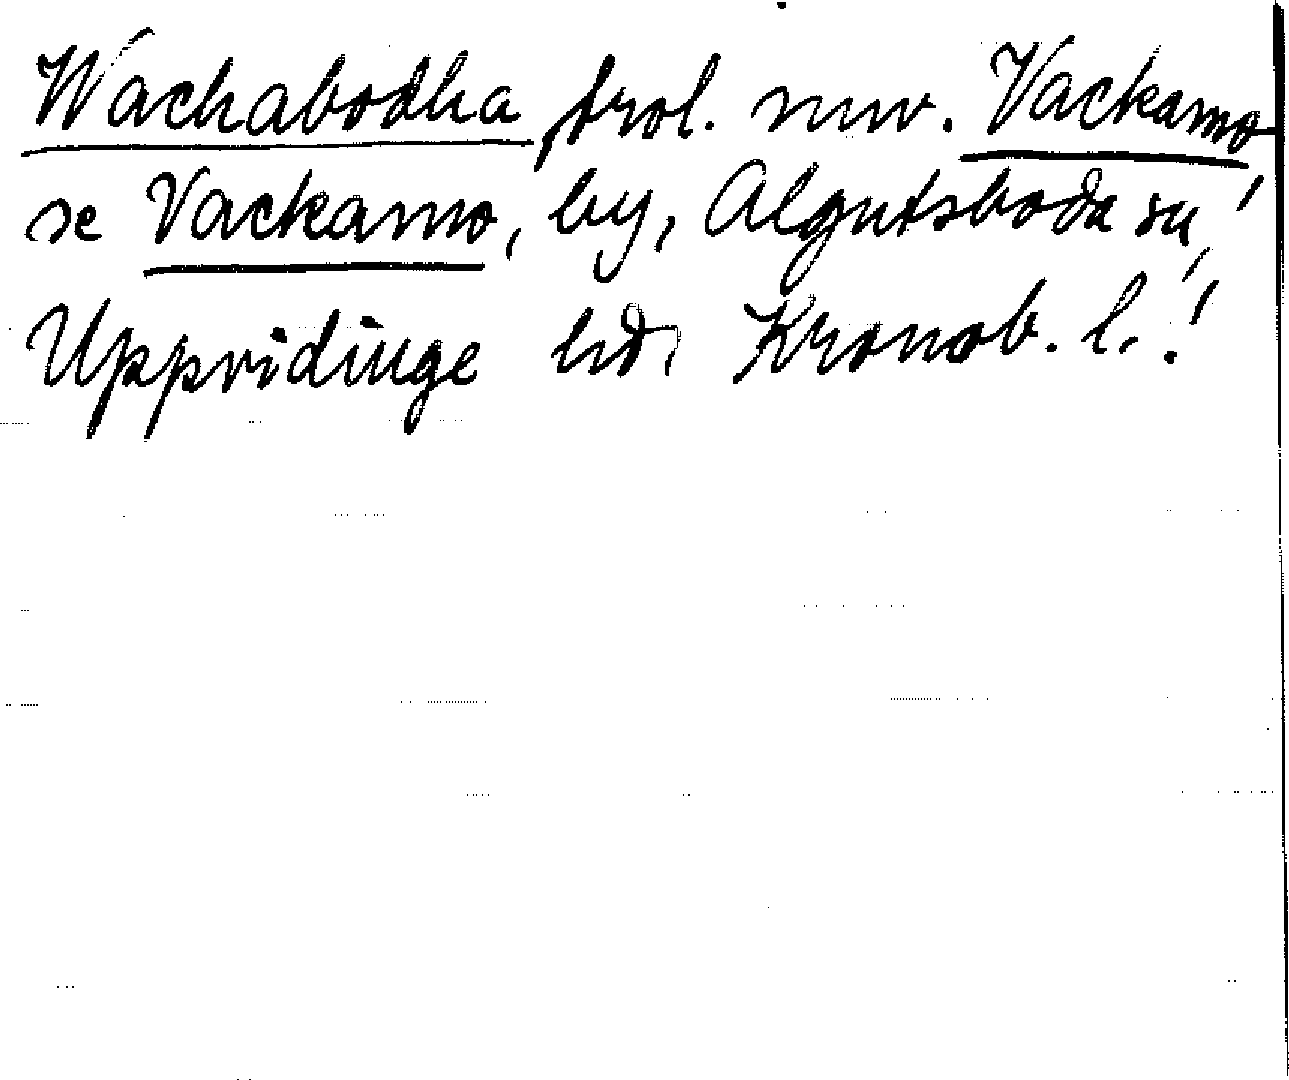 Wachabodha, trol. nuv. Vackamo,
se Vackamo, by, Algutsboda sn,
Uppvidinge hd, Kronob. l.!